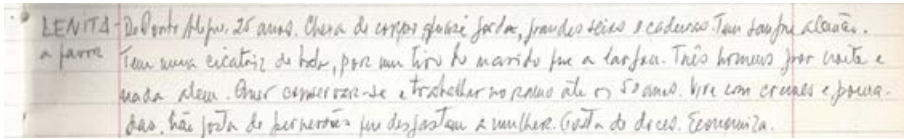 LENITA - De Porto Alegre. 25 anos. Cheia de corpo, quase gorda, grandes seios e cadeiras. Tem sangue alemão.
a farra Tem uma cicatriz de bala, por um tiro do marido que a largou. Três homens por noite e
nada alem. Quer conservar-se e trabalhar no ramo até os 50 anos. Vive com cremes e poma-
das. Não gosta de perversões que desgastam a mulher. Gosta de doces. Economiza.